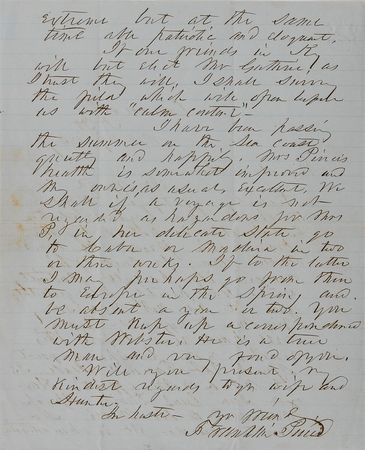 extreme but at the same
time able patriotic and eloquent.
If our friends in K
will but elect Mr Guthrie, as
I trust they will, I shall
the which will open upon
us with "calm content" –
I have been passing
the summer on the Sea coast,
quietly and happily. Mrs Pierce's
health is somewhat improved and
my own is, as usual, excellent. We
shall if a voyage is not
regarded as hazardous for Mrs
P. in her delicate state, go
to Cuba or Madeira in two
or three weeks. If to the latter
I may perhaps go from there
to Europe in the Spring and
be absent a year or two. You
must keep up a correspondence
with Webster. He is a true
man and very fond of you.
Will you present my
kindest regards to yr wife and
Hunter.
In haste – Yr friend
Franklin Pierce